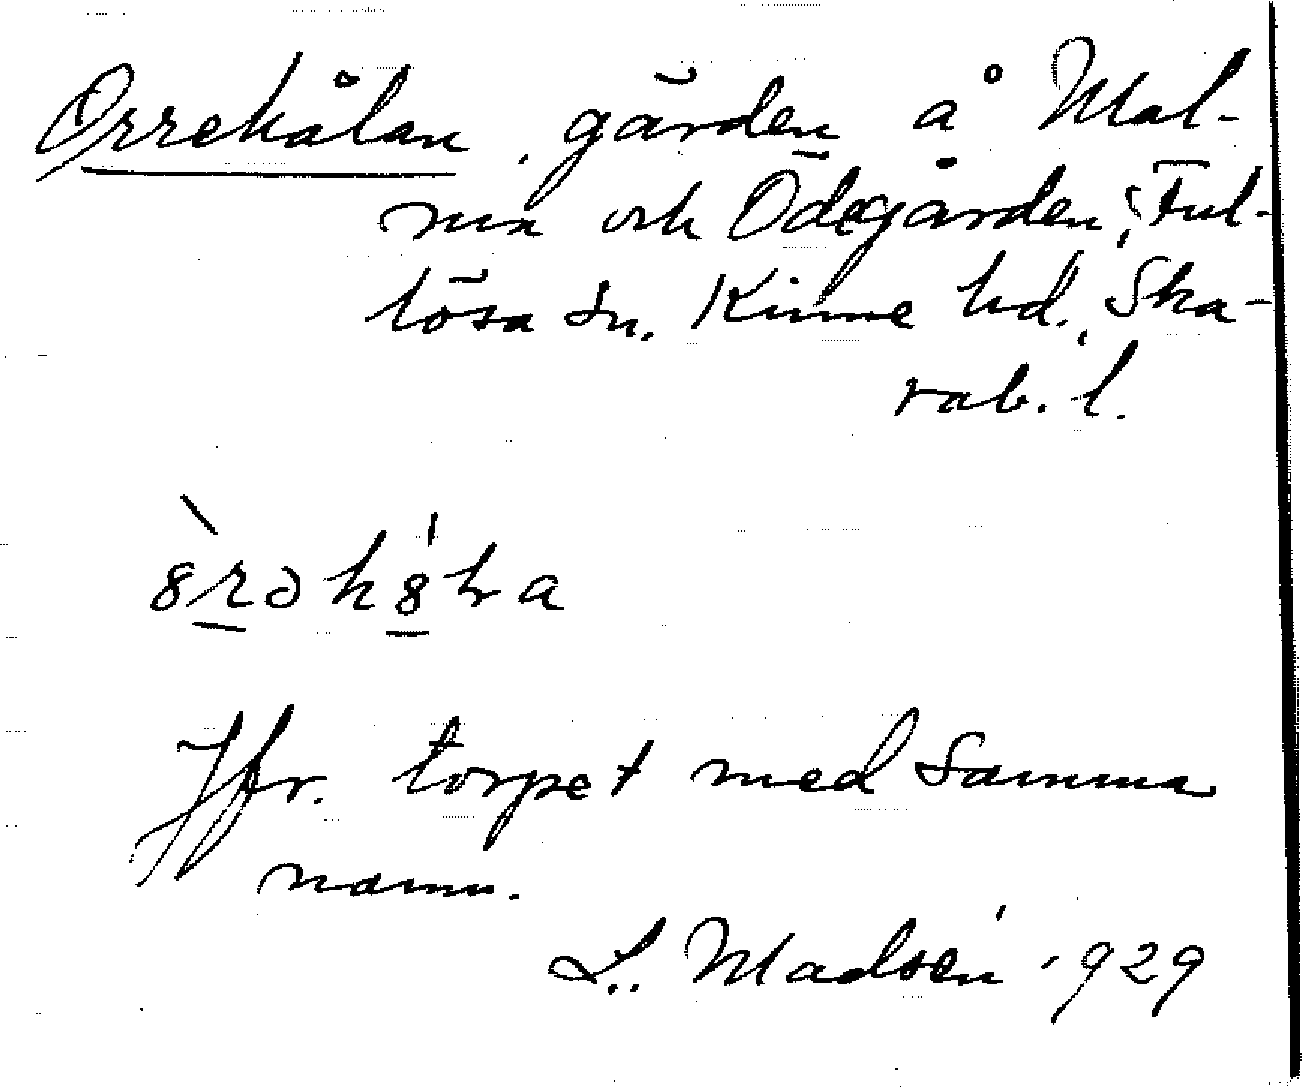 Orrekålan, gården å Mal-
ma och Ödegården, Ful-
lösa sn. Kinne hd., Ska-
rab. l.
Jfr. torpet med samma
namn.
L. Madsén 1929